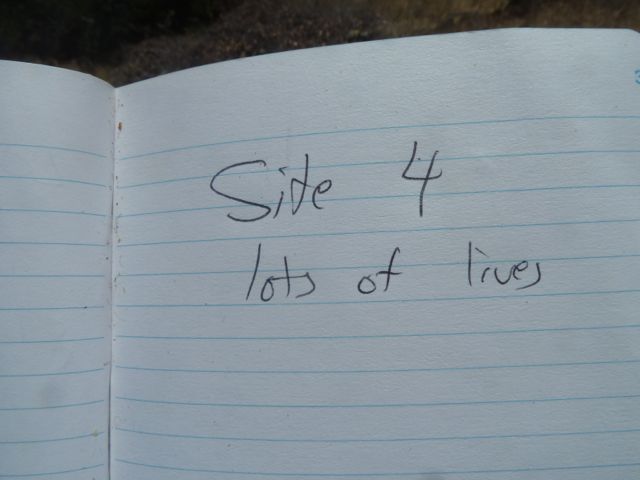 Site 4
lots of lives